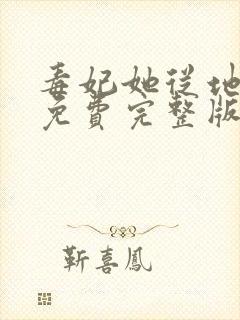 毒妃她從地
免費完整版
靳喜鳳